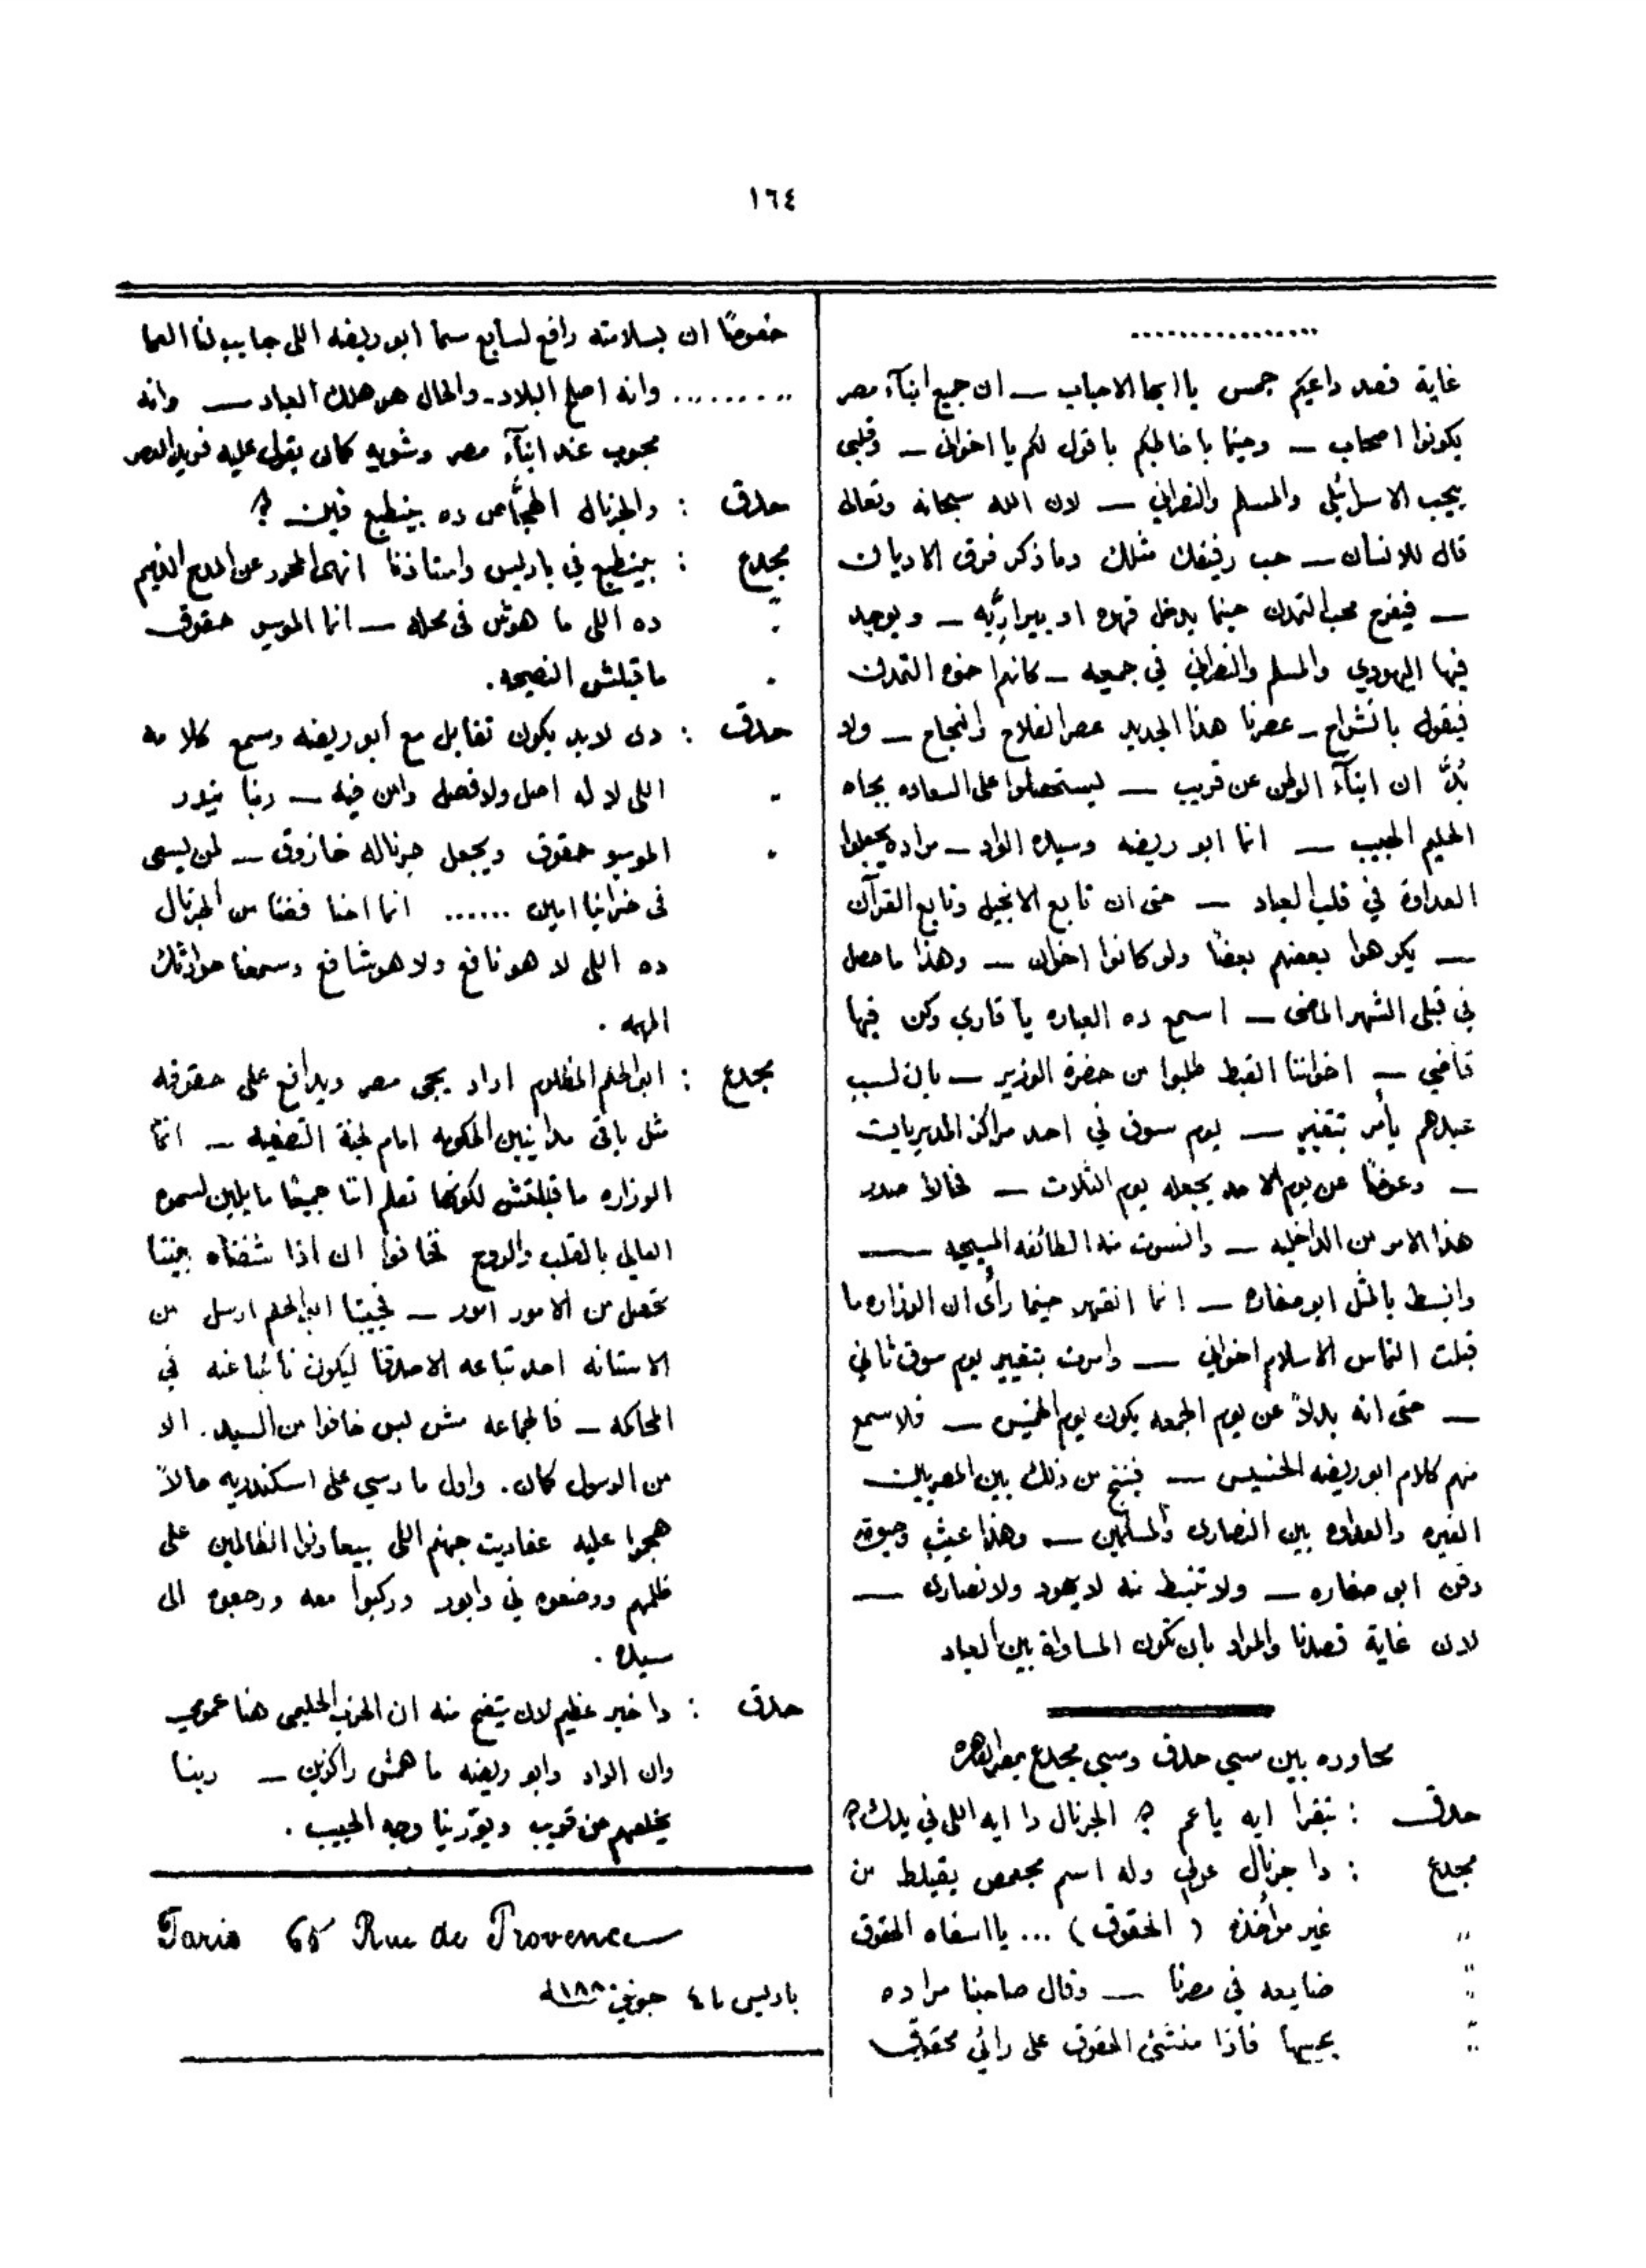 ١٦٤
................
غاية قصد داعيكم جمس يا ايها الاحباب ــ ان جميع ابنآء مصر
يكونوا اصحاب ــ وحينما باخاطبكم باقول لكم يا اخواني ــ وقلبي
يحب الاسرائيلي والمسلم والنصراني ــ لان الله سبحانه وتعالى
قال للانسان ــ حب رفيقك مثلك وما ذكر فرق الاديان
ــ فيفرح محب التمدن حينما يدخل قهوه او بيراريه ــ ويوجد
فيها اليهودي والمسلم والنصراني في جمعيه ــ كانهم اخوه التمدن
فيقول بانشراح ــ عصرنا هذا الجديد عصر الفلاح والنجاح ــ ولا
بُدَّ ان ابنآء الوطن عن قريب ــ ليستحصلوا على السعاده بجاه
الحليم الحبيب ــ انما ابو ريضه وسيده الواد ــ مراده يجعلوا
العداوة في قلب العباد ــ حتى ان تابع الانجيل وتابع القرآن
ــ يكرهوا بعضهم بعضًا ولو كانوا اخوان ــ وهذا ما حصل
في قبلي الشهر الماضي ــ اسمع ده العباره يا قاري وكن فيها
قاضي ــ اخواتنا القبط طلبوا من حضرة الوزير ــ بان لسبب
عيدهم يأمر بتغيير ــ يوم سوق في احد مراكز المديريات
ــ وعوضًا عن يوم الاحد يجعله يوم الثلاث ــ فحالا صدر
هذا الامر من الداخليه ــ وانسرت منه الطائفه المسيحيه ــ
وانبسط بالمثل ابو صفاره ــ انما انقهر حينما رأى ان الوزاره ما
قبلت التماس الاسلام اخواني ــ وامرت بتغيير يوم سوق ثاني
ــ حتى انه بدلاً عن يوم الجمعه يكون يوم الخميس ــ فلا سمع
منهم كلام ابو ريضه الخسيس ــ فينتج من ذلك بين المصريين
الغيره والعداوه بين النصارى والمسلمين ــ وهذا عيب وحيوة
دقن ابو صفاره ــ ولا تنبسط منه لا يهود ولا نصارى ــ
لان غاية قصدنا والمراد بان تكون المساواة بين العباد
محاوره بين سي حدق وسي مجدع بمصر القاهره
حدق : بتقرا ايه يا عم ؟ الجرنال دا ايه اللي في يدك ؟
مجدع : دا جرنال عربي وله اسم مجعمص يقيلط من
" غير مؤاخذه ( الحقوق ) ... يا اسفاه الحقوق
" ضايعه في مصرنا ــ وقال صاحبنا مراده
" يحييها فاذا منشئ الحقوق على رائي محقوق
خصوصًا ان بسلامته رافع لسابع سما ابو ريضه اللي جايب لنا العما
......... وانه اصلح البلاد ــ والحال هو هلك العباد ــ وانه
محبوب عند ابنآء مصر وشويه كمان يقول عليه
حدق : والجرنال الهجَّاص ده بينطبع فين ؟
مجدع : بينطبع في باريس واستاذنا انهى المحرر عن المدح الذميم
" ده اللي ما هوش في محله ــ انما الموسيو حقوق
" ما قبلش النصيحه .
حدق : دى لابد يكون تقابل مع ابو ريضه وسمع كلامه
" اللى لا له اصل ولا فصل وامن فيه ــ ربنا ينور
" الموسيو حقوق ويجعل جرناله خازوق ــ لمن يسعى
في خرابنا امين ...... انما احنا فضنا من الجرنال
ده اللي لا هو نافع ولا هو شافع وسمعنا حوادثك
المهمه .
مجدع : ابو الحلم المظلوم اراد يجى مصر ويدافع على حقوقه
مثل باقى مداينين الحكومه امام لجنة التصفيه ــ انما
الوزاره ما قبلتش لكونها تعلم اننا جميعًا مايلين لسموه
العالي بالقلب والروح فخافوا ان اذا شفناه بيننا
تحصل من الامور امور ــ فحبيبنا ابو الحلم ارسل من
الاستانه احد تباعه الاصدقا ليكون نائبا عنه في
المحاكمه ــ فالجماعه مش بس خافوا من السيد . الا
من الرسول كمان . واول ما رسي على اسكندريه حالاً
هجموا عليه عفاريت جهنم اللي بيعاونوا الظالمين على
ظلمهم ووضعوه في وابور وركبوا معه ورجعوه الى
سيده .
حدق : دا خبر عظيم لان يتضح منه ان الحزب الحليمي هنا عمومي
وان الواد وابو ريضه ما همش راكزين ــ ربنا
يخلصهم عن قريب ويورينا وجه الحبيب .
Paris 65 Rue de Provence
باريس ٤ جونيو ١٨٨٠